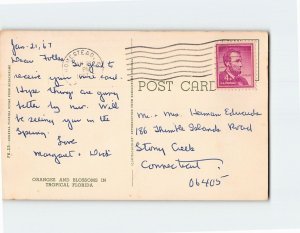 Jan. 21, 67
Dear Folks, So glad to
receive your nice card.
Hope things are going
better by now. Will
be seeing you in the
Spring.
Love
Margaret + Dick
ORANGES AND BLOSSOMS IN
TROPICAL FLORIDA
HOMESTEAD
POST CARD
Mr. + Mrs. Herman Edwards
186 Thimble Islands Road
Stony Creek
Connecticut
06405